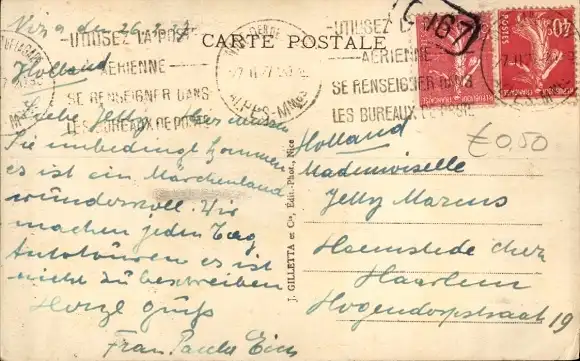 Nizza den 26.2.27
Holland
UTILISEZ LA POSTE
AÉRIENNE
SE RENSEIGNER DANS
LES BUREAUX DE POSTE
CARTE POSTALE
ALPES-MMES
UTILISEZ LA POSTE
AÉRIENNE
SE RENSEIGNER DANS
LES BUREAUX DE POSTE
POSTES
40c
€ 0,50
Liebe Jelly
Sie unbedingt kommen
es ist ein Märchenland
wundervoll. Wir
machen jeden Tag
Autotouren es ist
nicht zu beschreiben
Herzl Gruß
Frau
J. GILLETTA et Cie, Édit.-Phot., Nice
Holland
Mademoiselle
Jelly Marcus
Heemstede chez
Haarlem
Hogendorpstraat 19